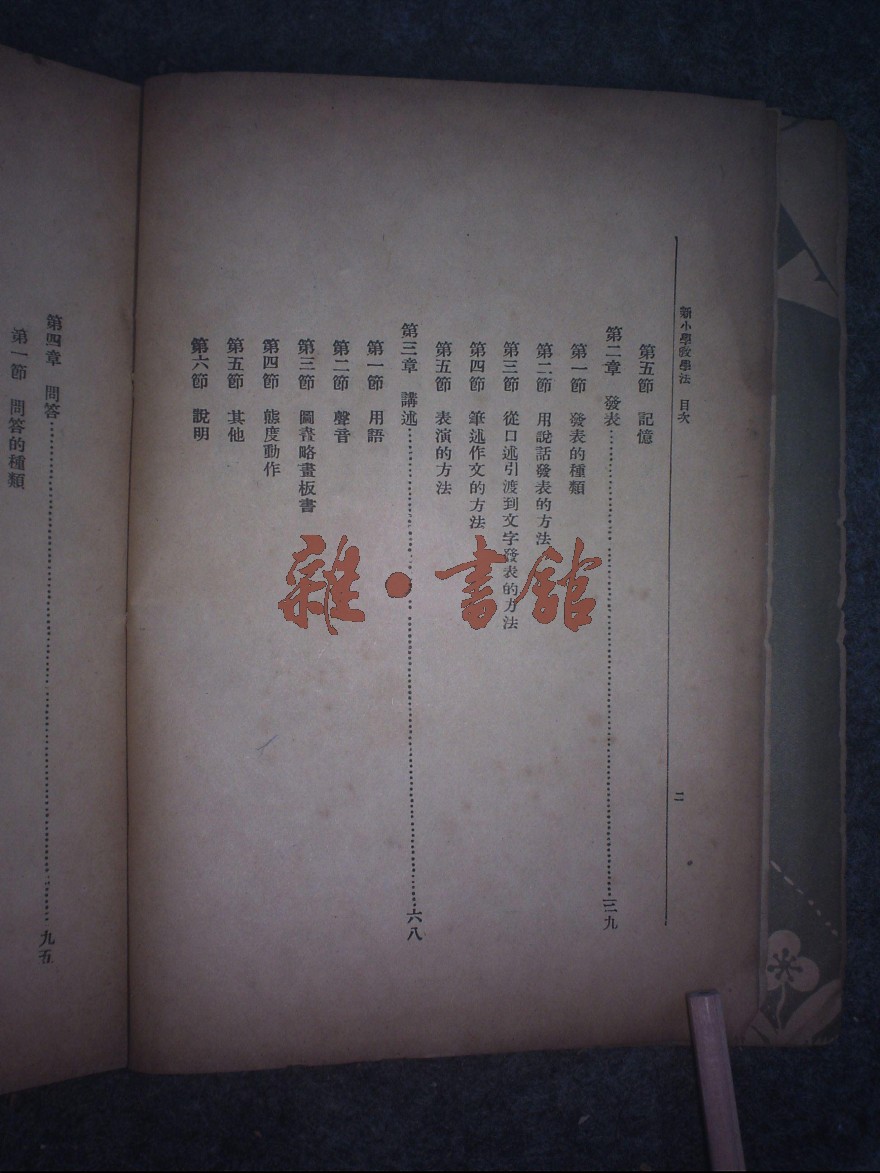 新小學教學法 目次
二
第五節 記憶
第二章 發表……三九
第一節 發表的種類
第二節 用說話發表的方法
第三節 從口述引渡到文字發表的方法
第四節 筆述作文的方法
第五節 表演的方法
第三章 講述……六八
第一節 用語
第二節 聲音
第三節 圖畫略畫板書
第四節 態度動作
第五節 其他
第六節 說明
第四章 問答……九五
第一節 問答的種類
雜·書館